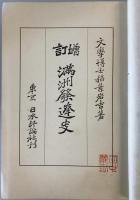 文學博士稻葉岩吉著
增訂 滿洲發達史
東京 日本評論社刊